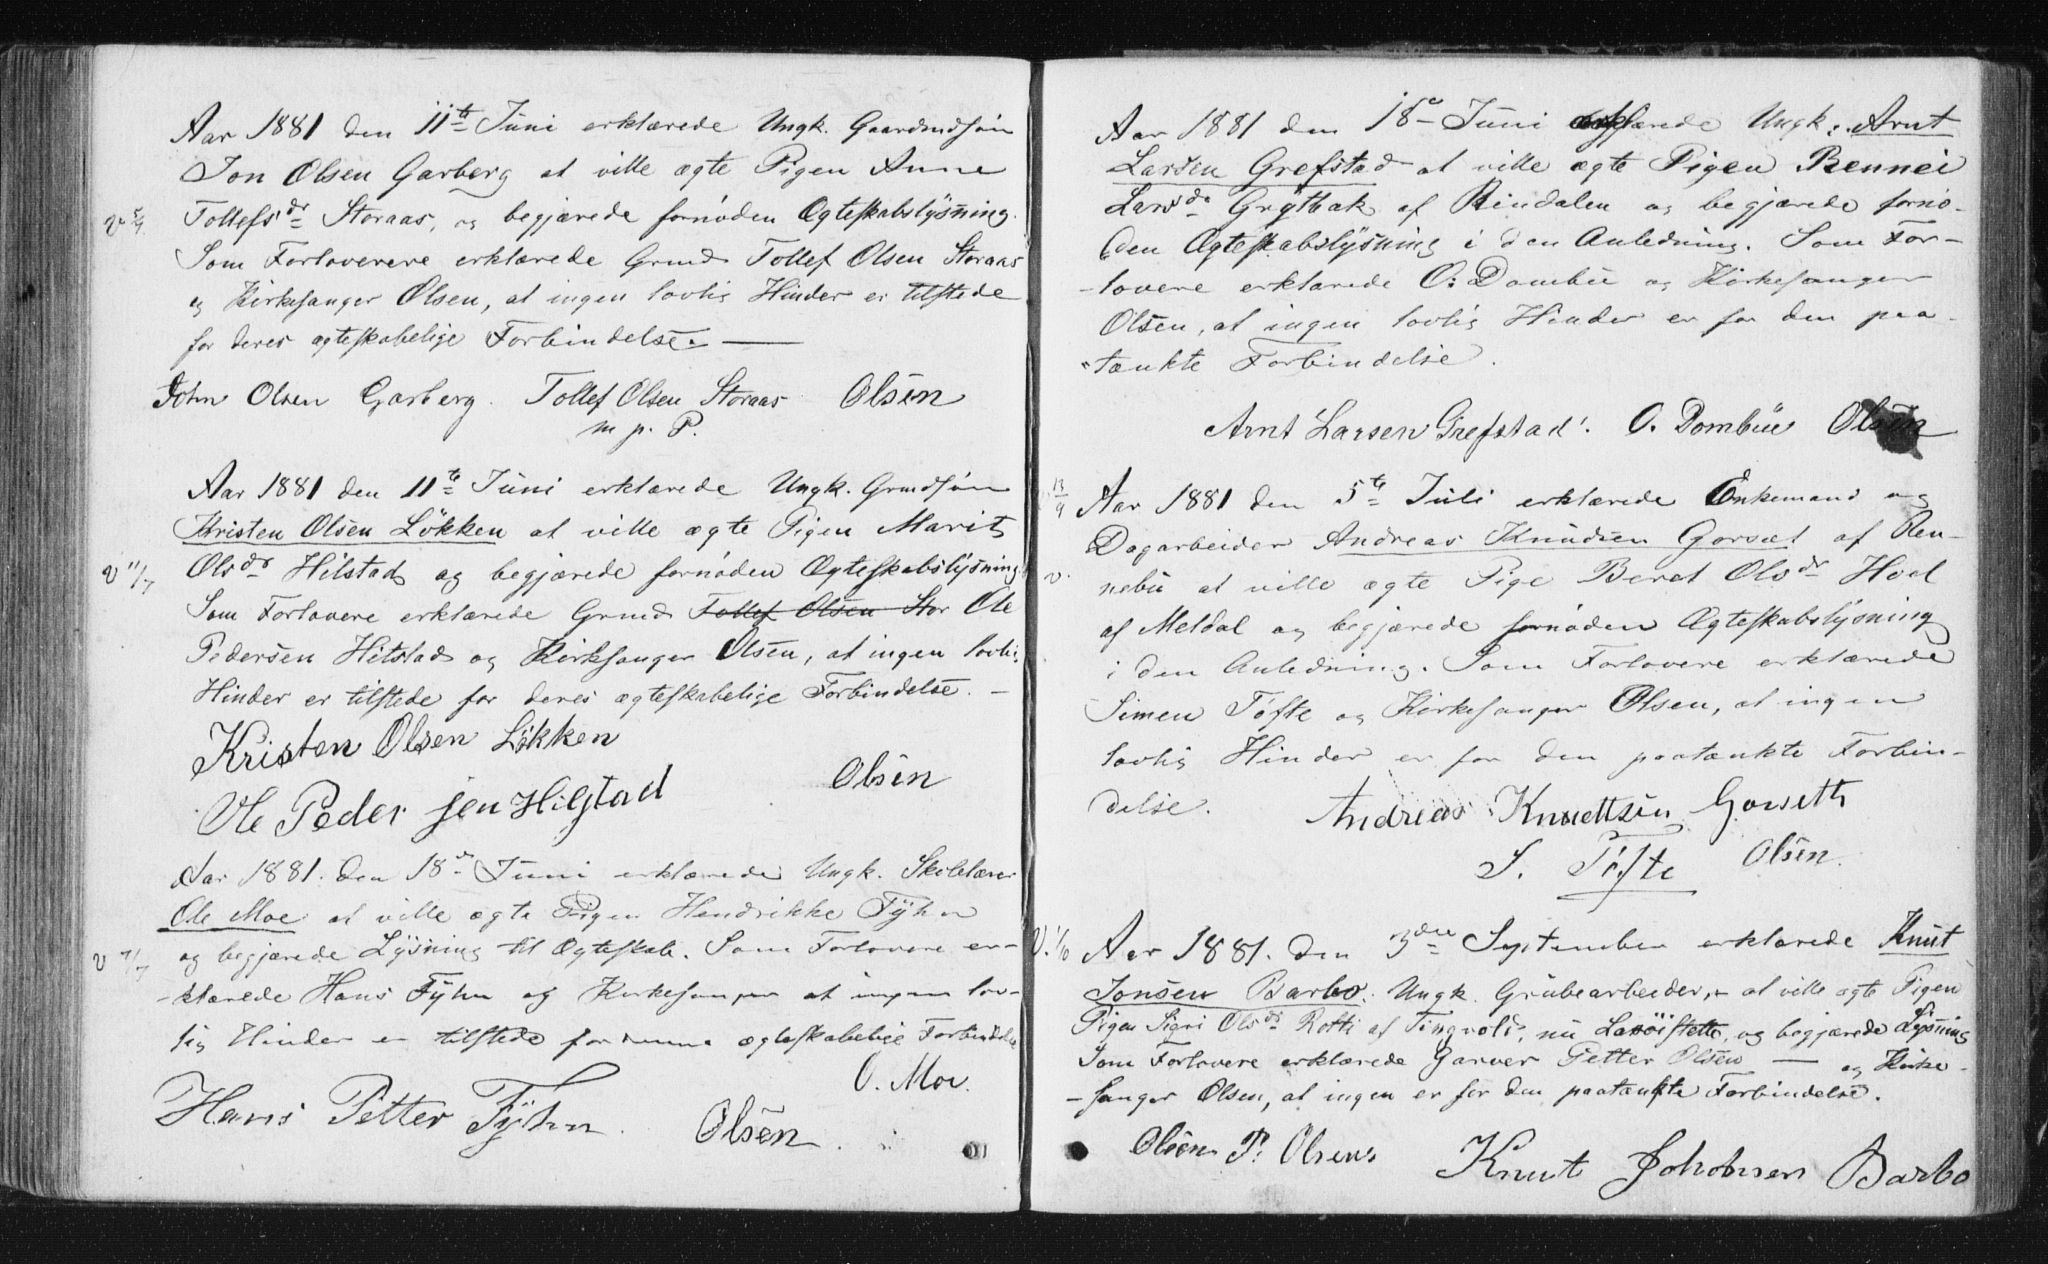 Aar 1881 den 11te Juni erklærede Ungk. Gaardmdsøn
Jon Olsen Garberg at ville ægte Pigen Anne
v 5/7 Tollefsdr Storaas, og begjærede fornøden Ægteskabslysning.
Som Forloverere erklærede Grmd Tollef Olsen Storaas
og Kirkesanger Olsen, at ingen lovlig Hinder er tilstede
for deres ægteskabelige Forbindelse. —
John Olsen Garberg. Tollef Olsen Storaas Olsen
m. p. P.
Aar 1881 den 11te Juni erklærede Ungk. Grmdsøn
Kristen Olsen Løkken at ville ægte Pigen Marit
v 11/7 Olsdr Hilstad og begjærede fornøden Ægteskabslysning
Som Forlovere erklærede Grmd Tollef Olsen Stor Ole
Pedersen Hilstad og Kirksanger Olsen, at ingen lovlig
Hinder er tilstede for deres ægteskabelige Forbindelse. —
Kristen Olsen Løkken
Ole Peder sen Hilstad Olsen
Aar 1881. den 18de Juni erklærede Ungk. Skolelærer
Ole Moe at ville ægte Pigen Hendrikke Fyhn
v 7/7 og begjærede Lysning til Ægteskab. Som Forlovere er-
-klærede Hans Fyhn og Kirkesanger at ingen lov-
lig Hinder er tilstede for denne ægteskabelige Forbindelse
O. Moe.
Hans Petter Fyhn. Olsen.
Aar 1881 den 18de Juni erklærede Ungk: Arnt
Larsen Grefstad at ville ægte Pigen Rennei
Larsdr Grytbak af Rindalen og begjærede fornø-
den Ægteskabslysning i den Anledning. Som For-
-lovere erklærede O: Dombu og Kirkesanger
Olsen, at ingen lovlig Hinder er for den paa-
-tænkte Forbindelse.
Arnt Larsen Grefstad. O. Dombu Olsen
13/9 Aar 1881 den 5te Juli erklærede Enkemand og
Dagarbeider Andreas Knudsen Gorset af Ren-
v. nebu at ville ægte Pige Beret Olsdr Hoel
af Meldal og begjærede fornøden Ægteskabslysning
i den Anledning. Som Forlovere erklærede
Simen Tøfte og Kirkesanger Olsen, at ingen
lovlig Hinder er for den paatænkte Forbin-
delse. Andreas Knudtsen Gorseth
S. Tøfte Olsen.
V. 1/10 Aar 1881. den 3die September erklærede Knut
Jonsen Barbo. Ungk. Grubearbeider, at ville ægte Pigen
Pigen Sigri Olsdr Rotti af Tingvold, nu og begjærede Lysning
Som Forlovere erklærede Garver Petter Olsen — og Kirke-
-sanger Olsen, at ingen er for den paatænkte Forbindelse.
Olsen P. Olsen Knut Johnsen Barbo